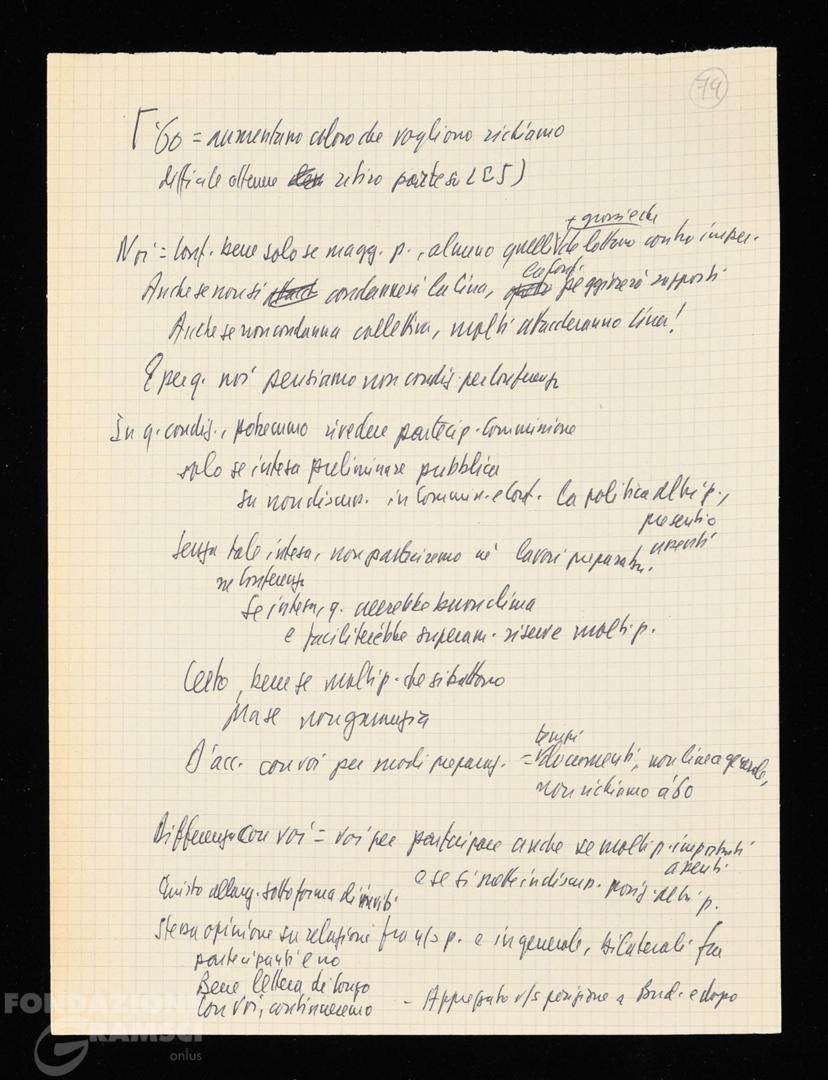 74
'60 = aumentano coloro che vogliono richiamo
difficile ottenere ritiro partesu (25)
+ grossi e che
Noi = Conf. bene solo se magg. p., almeno quelli che lottano contro imper.
Anche se non si condannerà la Cina, peggiorerà rapporti
Anche se non condanna collettiva, molti attaccheranno Cina!
E per q. noi pensiamo non condiz. per Conferenza
In q. condiz., potremmo rivedere partecip. Commissione
solo se intesa preliminare pubblica
su non discuss. in Commiss. e Conf. la politica altri p.,
presenti o
assenti
Senza tale intesa, non parteciperemo né lavori preparator.
né Conferenza
Se intesa, q. creerebbe buon clima
e faciliterebbe superam. riserve molti p.
Certo, bene se molti p. che si battono
Ma se non
D'acc. con voi per modi preparaz. = documenti, non linea generale,
non richiamo a '60
Differenza con voi = voi per partecipare anche se molti p. importanti
assenti
e se si mette in discuss. posiz. altri p.
Giusto allarg. sotto forma di inviti.
Stessa opinione su relazione fra n/s p. e in generale, bilaterali fra
partecipanti e no
Bene lettera di Longo
Con voi, continueremo - Apprezzato v/s posizione a Bud. e dopo
FONDAZIONE
GRAMSCI
onlus